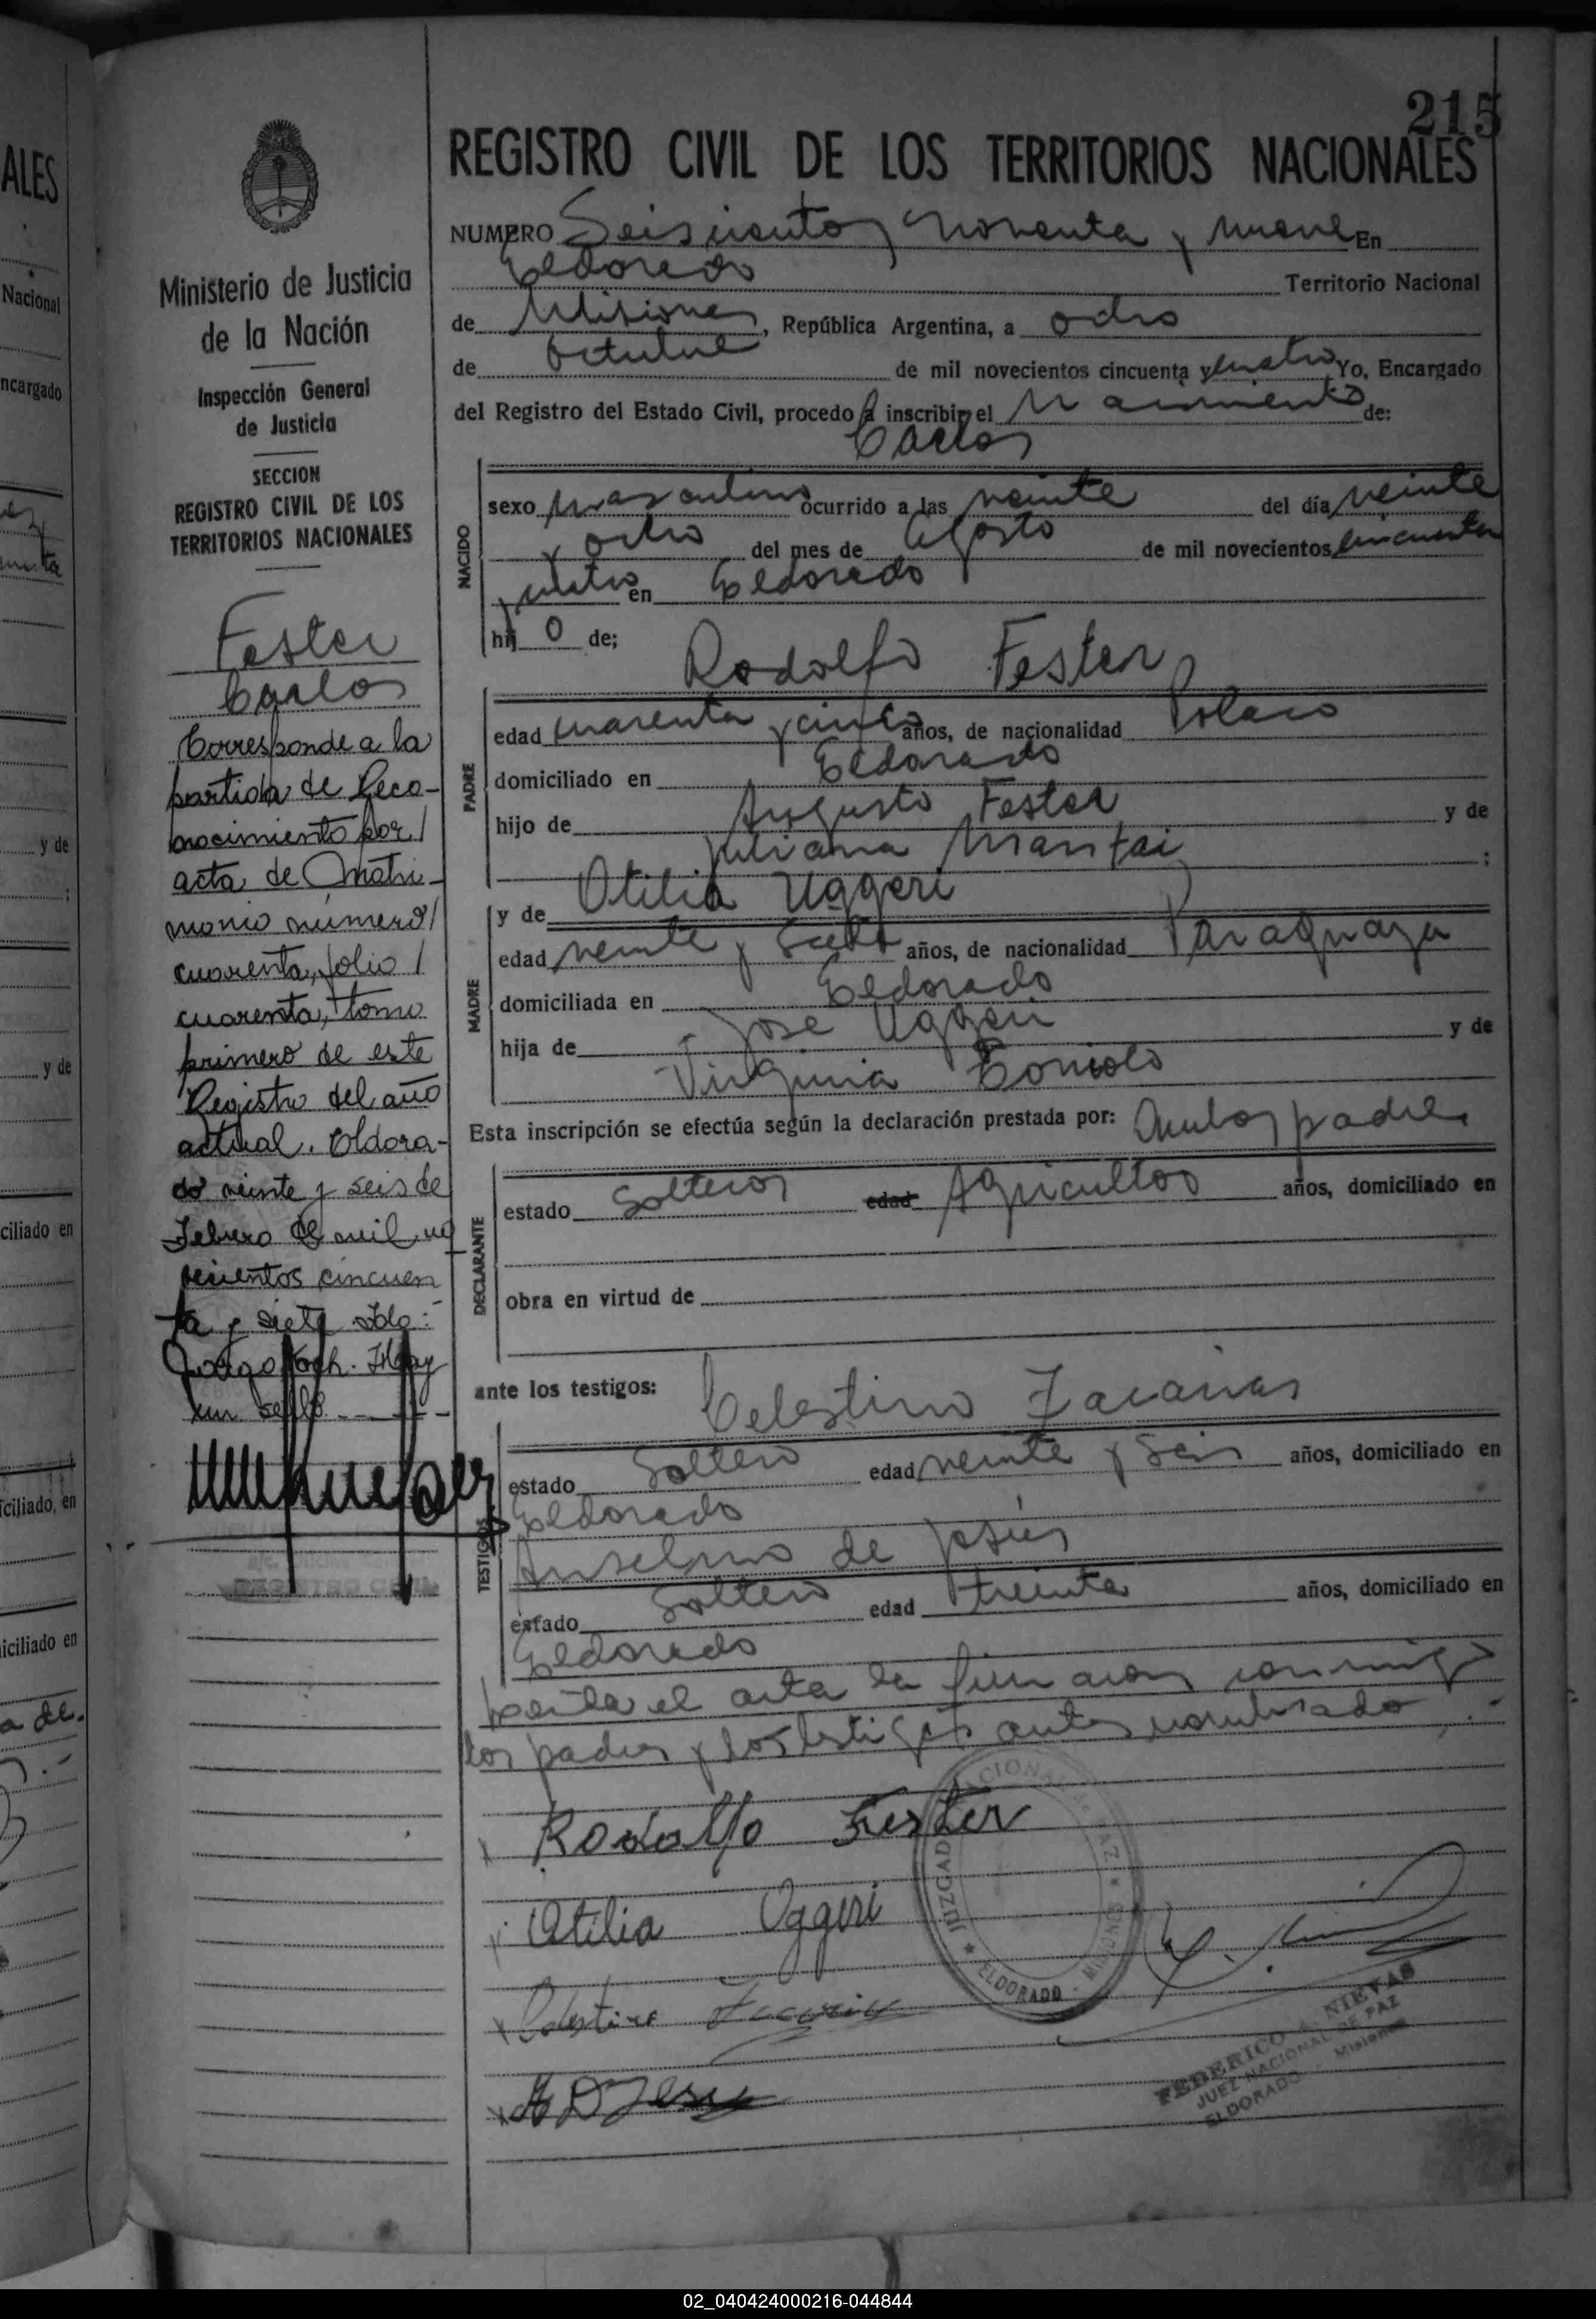 215
REGISTRO CIVIL DE LOS TERRITORIOS NACIONALES
NUMERO Seiscientos noventa y nueve En
Eldorado Territorio Nacional
de Misiones, República Argentina, a ocho
de octubre de mil novecientos cincuenta y cuatro Yo, Encargado
del Registro del Estado Civil, procedo a inscribir el Nacimiento de:
Carlos
NACIDO
sexo masculino ocurrido a las veinte del día veinte
y ocho del mes de Agosto de mil novecientos cincuenta
y cuatro en Eldorado
hij o de;
Rodolfo Fester
PADRE
edad cuarenta y cinco años, de nacionalidad Polaco
domiciliado en Eldorado
hijo de Augusto Fester y de
Juliana Mantai ;
y de Otilia Uggeri
MADRE
edad veinte y siete años, de nacionalidad Paraguaya
domiciliada en Eldorado
hija de Jose Uggeri y de
Virginia Toniolo
Esta inscripción se efectúa según la declaración prestada por: Ambos padres
DECLARANTE
estado Solteros edad Agricultor años, domiciliado en
obra en virtud de
ante los testigos: Celestino Zacarias
TESTIGOS
estado Soltero edad veinte y seis años, domiciliado en
Eldorado
Anselmo de Jesús
estado Soltero edad treinta años, domiciliado en
Eldorado
el acta la firmaron conmigo
los padres y los testigos antes nombrado
Rodolfo Fester
Otilia Oggeri
Celestino Zacarias
A D Jesu
JUZGADO NACIONAL de PAZ
ELDORADO - MISIONES
FEDERICO A. NIEVAS
JUEZ NACIONAL DE PAZ
ELDORADO - Misiones
Ministerio de Justicia
de la Nación
Inspección General
de Justicia
SECCION
REGISTRO CIVIL DE LOS
TERRITORIOS NACIONALES
Fester
Carlos
Corresponde a la
partida de Reco-
nocimiento por
acta de Matri-
monio número
cuarenta, folio
cuarenta, tomo
primero de este
Registro del año
actual. Eldora-
do veinte y seis de
Febrero de mil no
vecientos cincuen
ta y siete Fdo:
Jorge Koch. Hay
un sello.
REGISTRO CIVIL
ALES
Nacional
ncargado
y de
;
y de
ciliado en
ciliado en
iciliado en
02_040424000216-044844